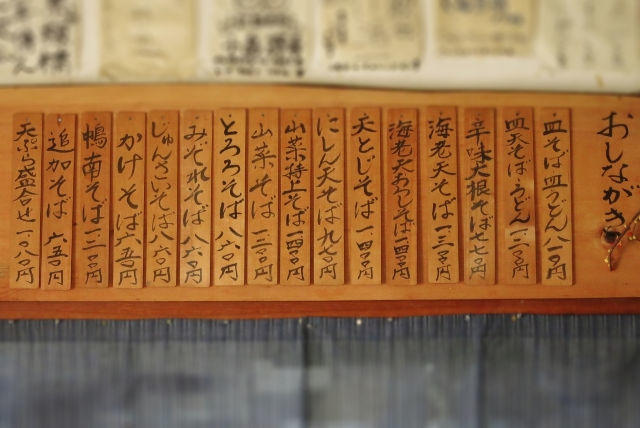 おしながき
皿そば皿うどん八一〇円
皿天そばうどん一三一〇円
辛味大根そば七七〇円
海老天そば一三一〇円
海老天おろしそば一四一〇円
天とじそば一四一〇円
にしん天そば九一〇円
山菜特上そば一四〇〇円
山菜そば一三一〇円
とろろそば八六〇円
みぞれそば八六〇円
じゅんさいそば八六〇円
かけそば六五〇円
鴨南そば一三一〇円
追加そば六五〇円
天ぷら盛合せ一〇八〇円